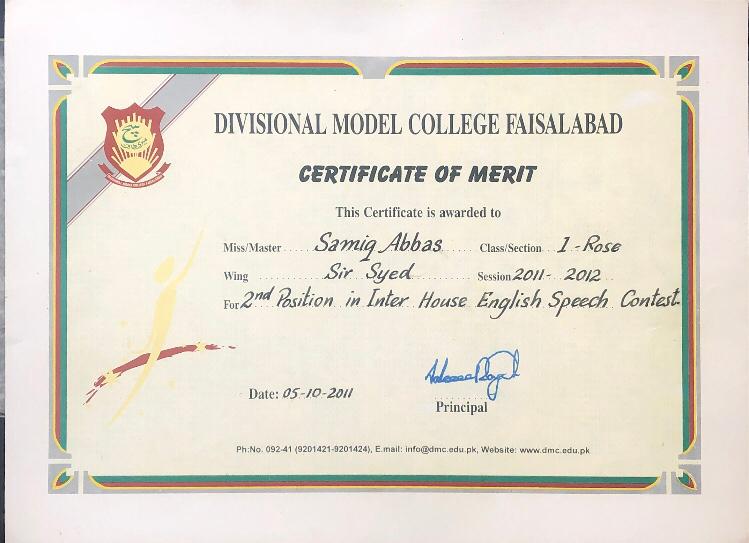 DIVISIONAL MODEL COLLEGE FAISALABAD
CERTIFICATE OF MERIT
This Certificate is awarded to
Miss/Master Samiq Abbas Class/Section 1 - Rose
Wing Sir Syed Session 2011 - 2012
For 2nd Position in Inter House English Speech Contest.
Date: 05-10-2011
Principal
Ph:No. 092-41 (9201421-9201424), E.mail: info@dmc.edu.pk, Website: www.dmc.edu.pk